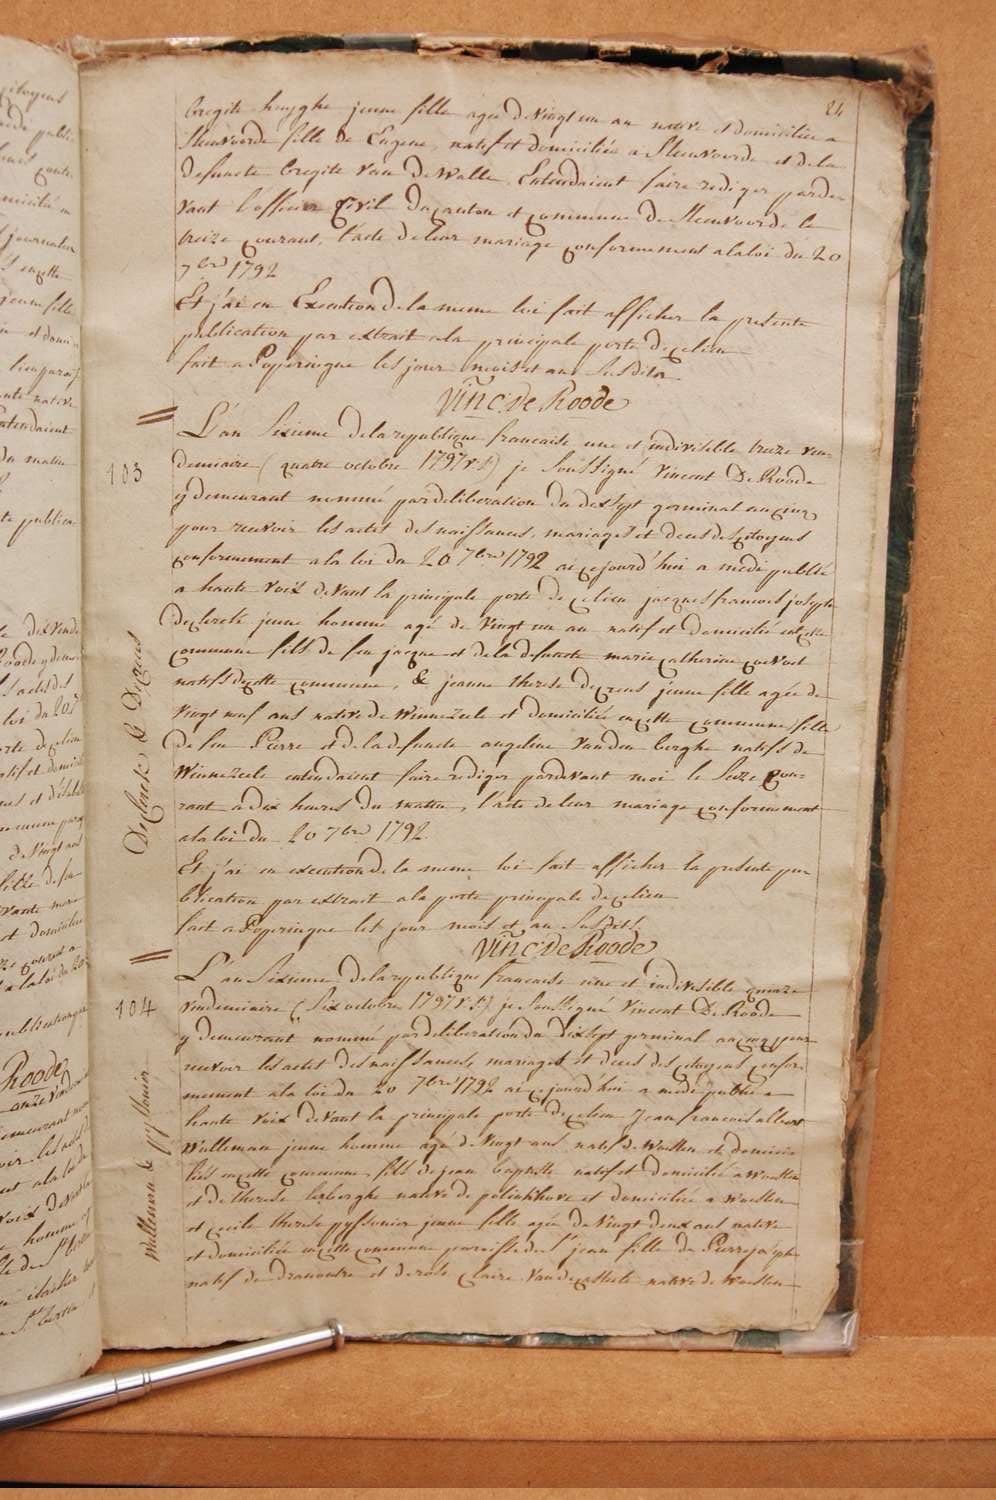 24
bregite huyghe jeune fille agée de vingt un an native et domiciliée a
Steenvoorde fille de Eugene, natif et domiciliée a Steenvoorde et de la
defuncte bregite van de walle, Entendaient faire rediger parde
vant l'officier Civil du canton et commune de Steenvoorde le
treize courant, l'acte de leur mariage conformement a la loi du 20
7bre 1792
Et j'ai en Execution de la meme loi fait afficher la presente
publication par extrait a la principale porte de ce lieu
fait a Poperingue les jour mois et an susdits
Vinc. De Roode
103
Declerck & Decreus
L'an Sixieme de la republique francaise une et indivisible treize ven-
demiaire (quatre octobre 1797 v:s:) je Soussigné Vincent De Roode
y demeurant nommé par deliberation du dixsept germinal an cinq
pour recevoir les actes des naissances, mariages et deces des citoyens
conformement a la loi du 20 7bre 1792 ai cejourd'hui a midi publié
a haute voix devant la principale porte de ce lieu jacques francois joseph
declerck jeune homme agé de vingt un an natif et domicilié en cette
commune fils de feu jacque et de la defuncte marie catherine
natifs de cette commune, & jeanne therese decreus jeune fille agée de
vingt neuf ans native de Winnezeele et domiciliée en cette commune, fille
de feu Pierre et de la defuncte angeline vanden berghe natifs de
Winnezeele entendaient faire rediger pardevant moi le Seize cou-
rant a dix heures du matin, l'acte de leur mariage conformement
a la loi du 20 7bre 1792.
Et j'ai en execution de la meme loi fait afficher la presente pu-
blication par extrait a la porte principale de ce lieu
fait a Poperingue les jour mois et an susdits
Vinc. De Roode
104
Walleman &
L'an Sixieme de la republique francaise une et indivisible quinze
vendemiaire (Six octobre 1797 v:s:) je Soussigné Vincent De Roode
y demeurant nommé par deliberation du dixsept germinal an cinq pour
recevoir les actes des naissances, mariages et deces des citoyens confor-
mement a la loi du 20 7bre 1792 ai cejourd'hui a midi publié a
haute voix devant la principale porte de ce lieu Jean francois albert
Walleman jeune homme agé de vingt ans natif de Woesten et domici-
lié en cette commune, fils de jean baptiste natif et domicilié a Woesten
et de therese native de polinkhove et domiciliée a Woesten
et cecile therese jeune fille agée de vingt deux ans native
et domiciliée en cette commune paroisse de St jean fille de Pierre joseph
natif de dranoutre et de rose claire vandecasteele native de Woesten